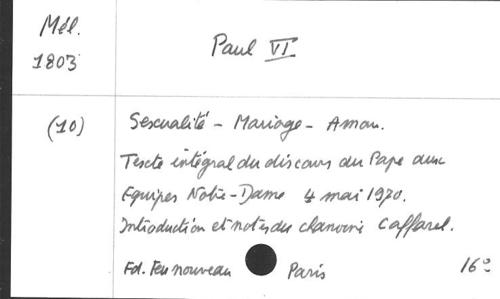 Mél.
1803
Paul VI
(10)
Sexualité - Mariage - Amour.
Texte intégral du discours du Pape aux
Equipes Notre-Dame 4 mai 1970.
Introduction et notes du chanoine Caffarel.
Ed. Feu nouveau Paris 16°